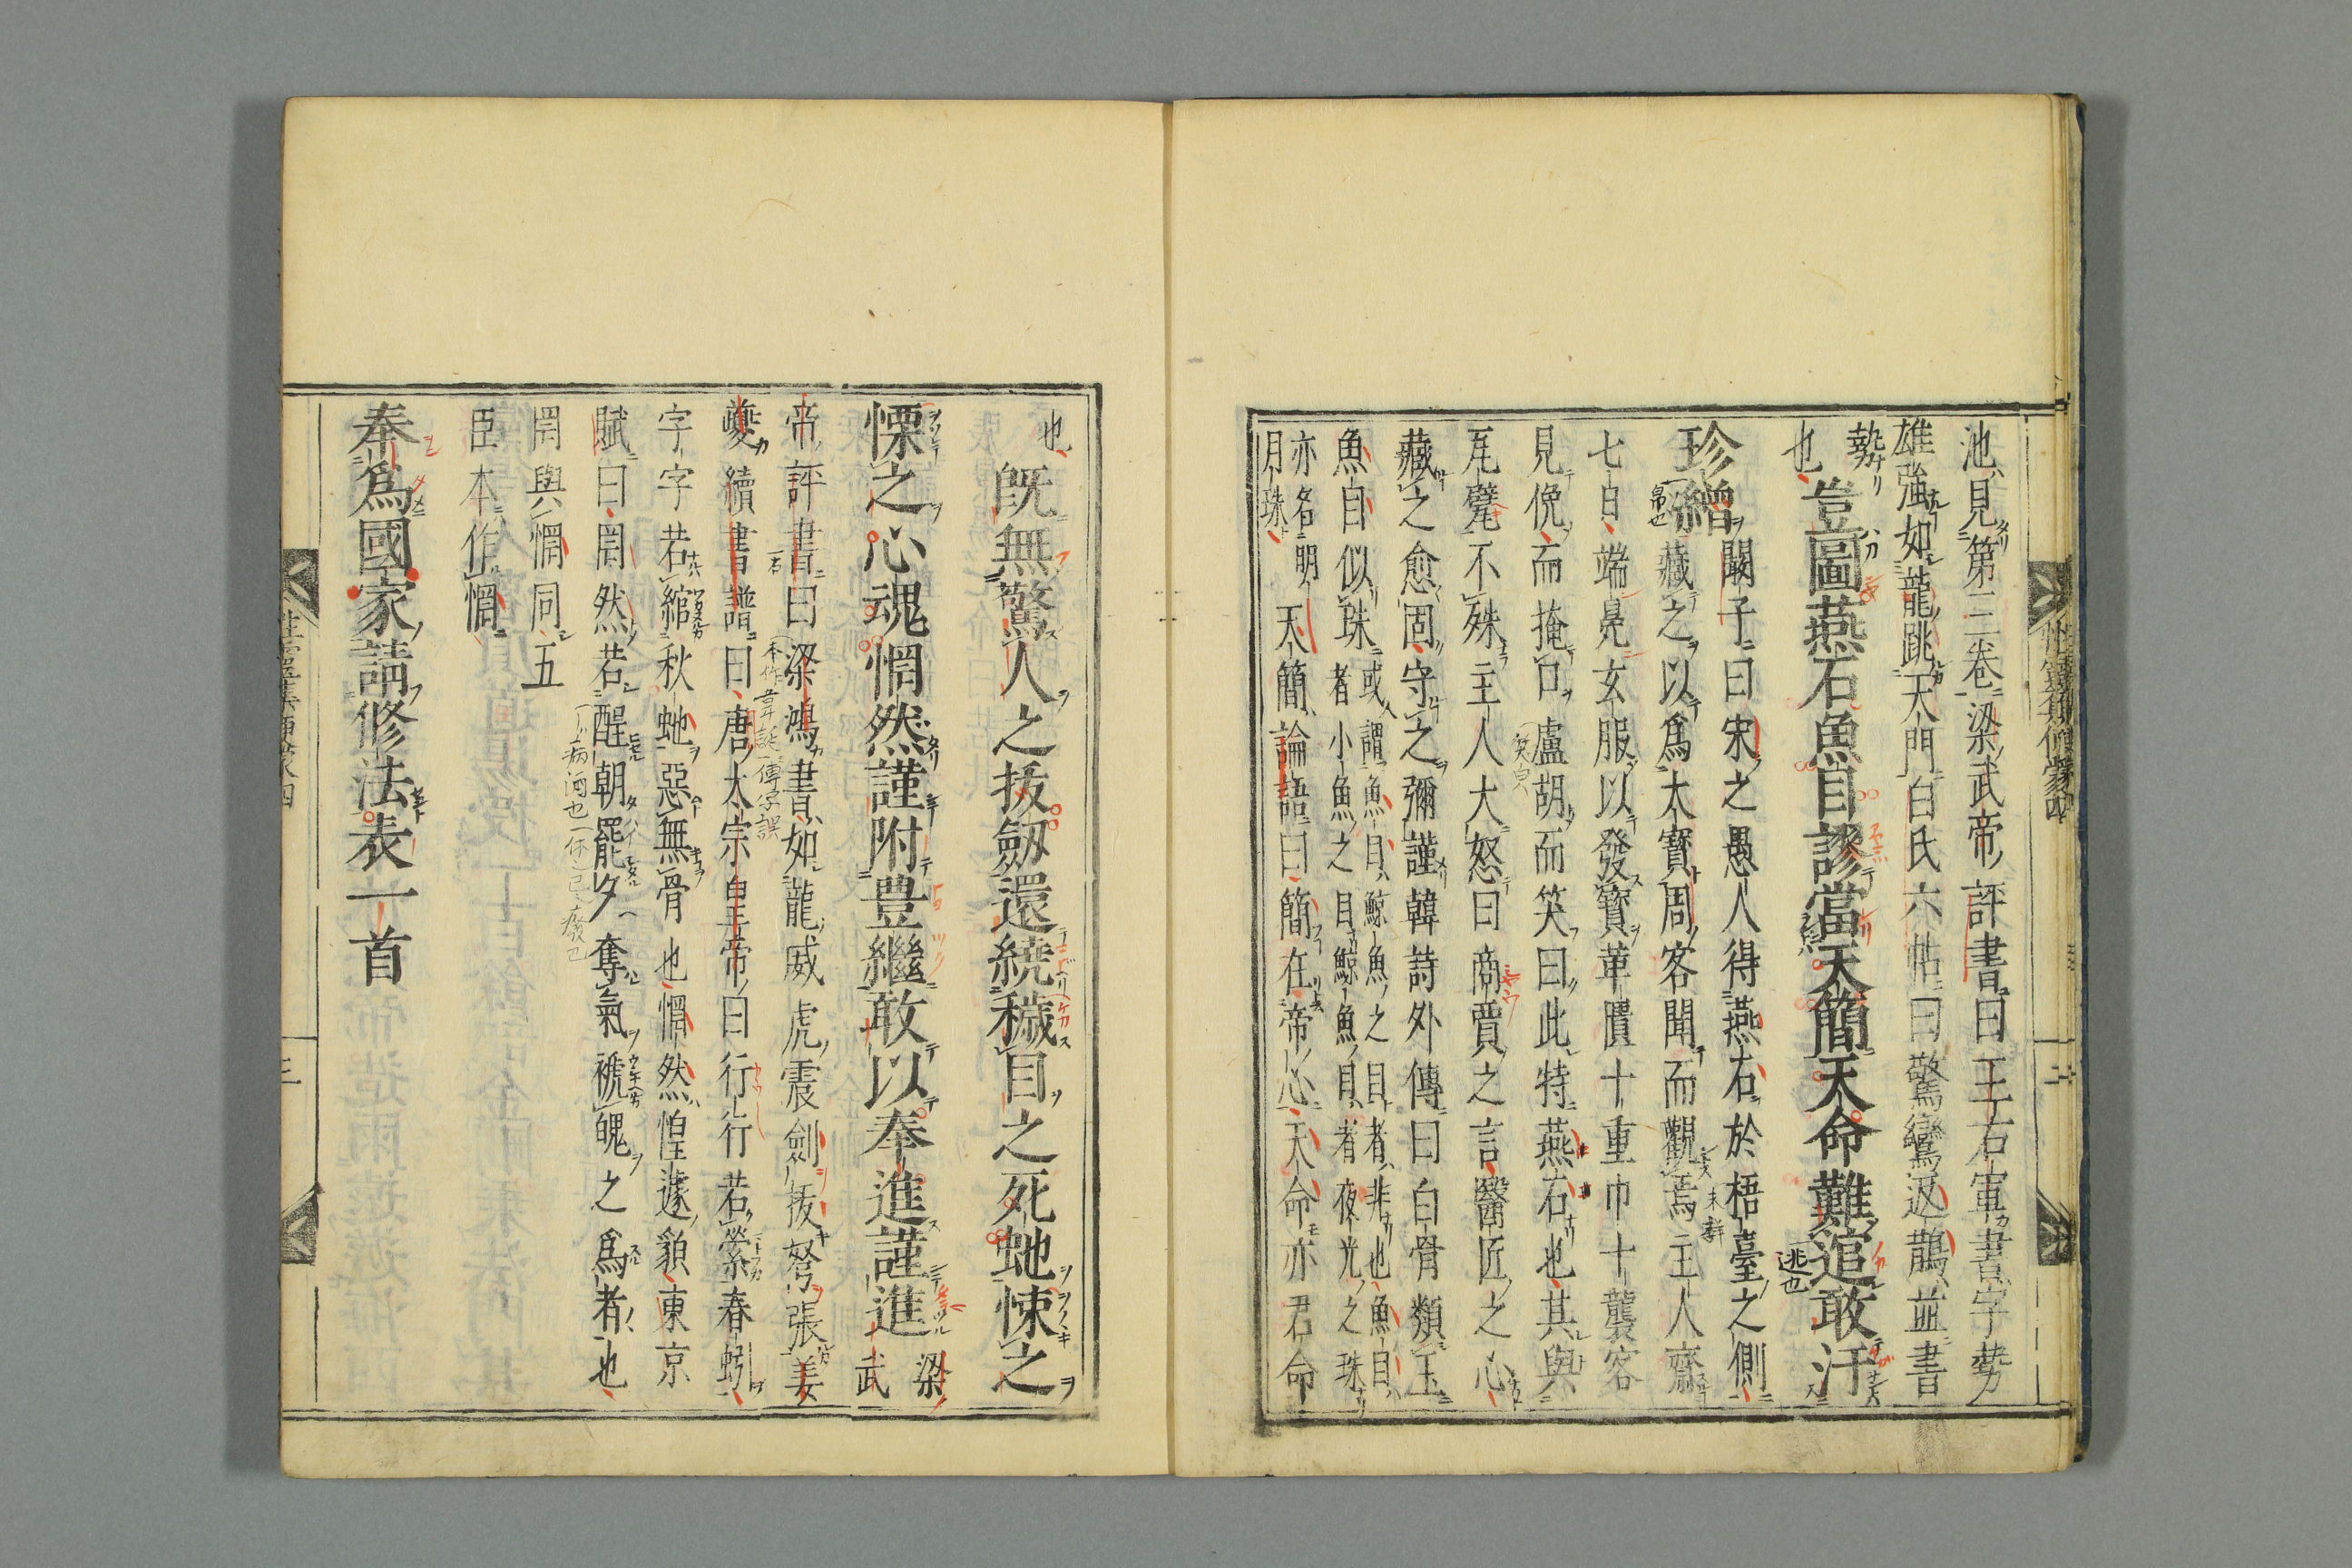 池見第三卷梁武帝評書曰王右軍書字勢
雄強如龍跳天門白氏六帖曰驚鸞返鵲並書
勢
也豈圖燕石魚目謬當天簡天命難逭敢汗
逃也
珍繒闞子曰宋之愚人得燕石於梧臺之側
帛也
藏之以爲太寶周客聞而觀焉主人齋
七日端冕玄服以發寶革匱十重巾十襲客
見俛而掩口盧胡而笑曰此特燕石也其與
瓦甓不殊主人大怒曰商賈之言醫匠之心
藏之愈固守之彌謹韓詩外傳曰白骨類玉
魚目似珠或謂魚目鯨魚之目者非也魚目
者小魚之目鯨魚目者夜光之珠
亦名明
月珠
天簡論語曰簡在帝心天命亦君命
也既無驚人之拔劔還繞穢目之死虵悚之
慄之心魂惘然謹附豊繼敢以奉進謹進梁
武
帝評書曰梁鴻書如龍威虎震劍拔弩張姜
本作韋誕傳字誤
夔續書譜曰唐太宗皇帝曰行行若縈春蚓
字字若綰秋虵惡無骨也惘然惶遽貌東京
賦曰罔然若酲朝罷夕奪氣褫魄之爲者也
罔與惘同五
臣本作惘
奉爲國家請修法表一首